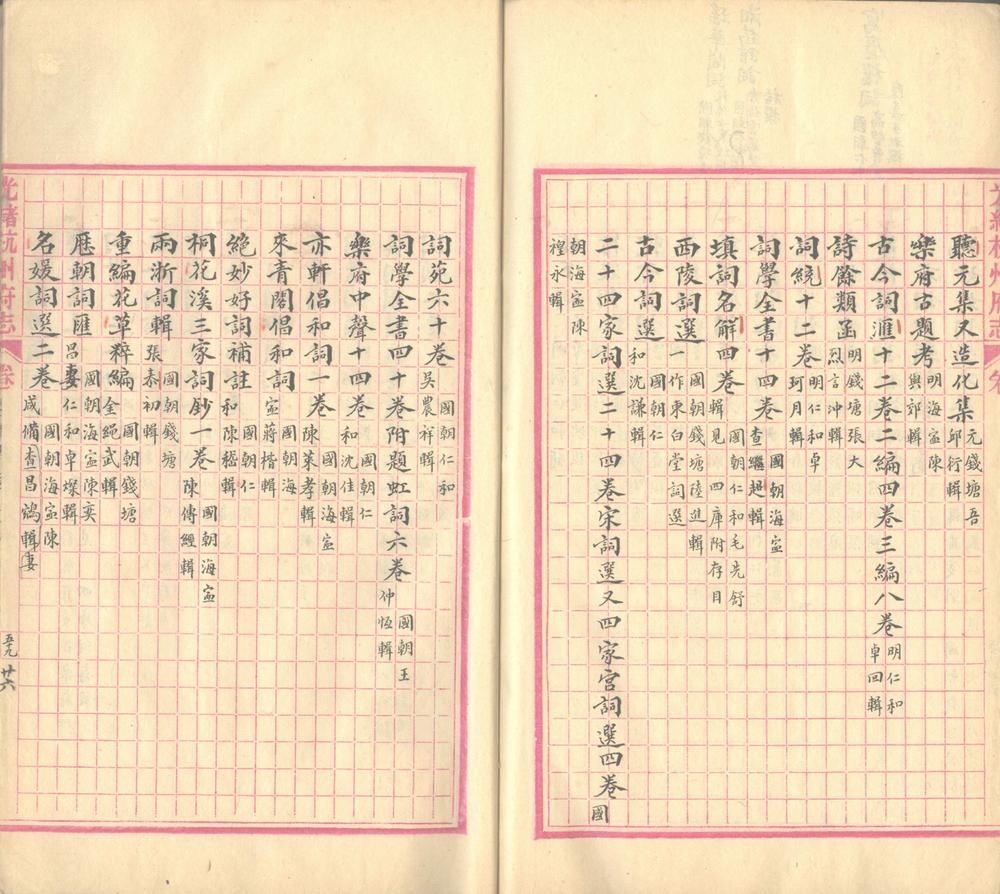 聽元集又造化集元錢塘吾邱衍輯
樂府古題考明海寍陳與郊輯
古今詞滙十二卷二編四卷三編八卷明仁和卓回輯
詩餘類函明錢塘張大烈言沖輯
詞綂十二卷明仁和卓珂月輯
詞學全書十四卷國朝海寍查繼超輯
填詞名解四卷國朝仁和毛先舒輯見四庫附存目
西陵詞選國朝錢塘陸進輯一作東白堂詞選
古今詞選國朝仁和沈謙輯
二十四家詞選二十四卷宋詞選又四家宮詞選四卷國
朝海寍陳禋永輯
詞苑六十卷國朝仁和吳農祥輯
詞學全書四十卷附題虹詞六卷國朝王仲恆輯
樂府中聲十四卷國朝仁和沈佳輯
亦軒倡和詞一卷國朝海寍陳萊孝輯
來青閣倡和詞國朝海寍蔣楷輯
絕妙好詞補註國朝仁和陳嵇輯
桐花溪三家詞鈔一卷國朝海寍陳傳經輯
兩浙詞輯國朝錢塘張泰初輯
重編花草粹編國朝錢塘金繩武輯
歷朝詞匯國朝海寍陳奕昌妻仁和卓燦輯
名媛詞選二卷國朝海寍陳成備查昌鵷輯妻
光緒杭州府志
卷
五九
廿六